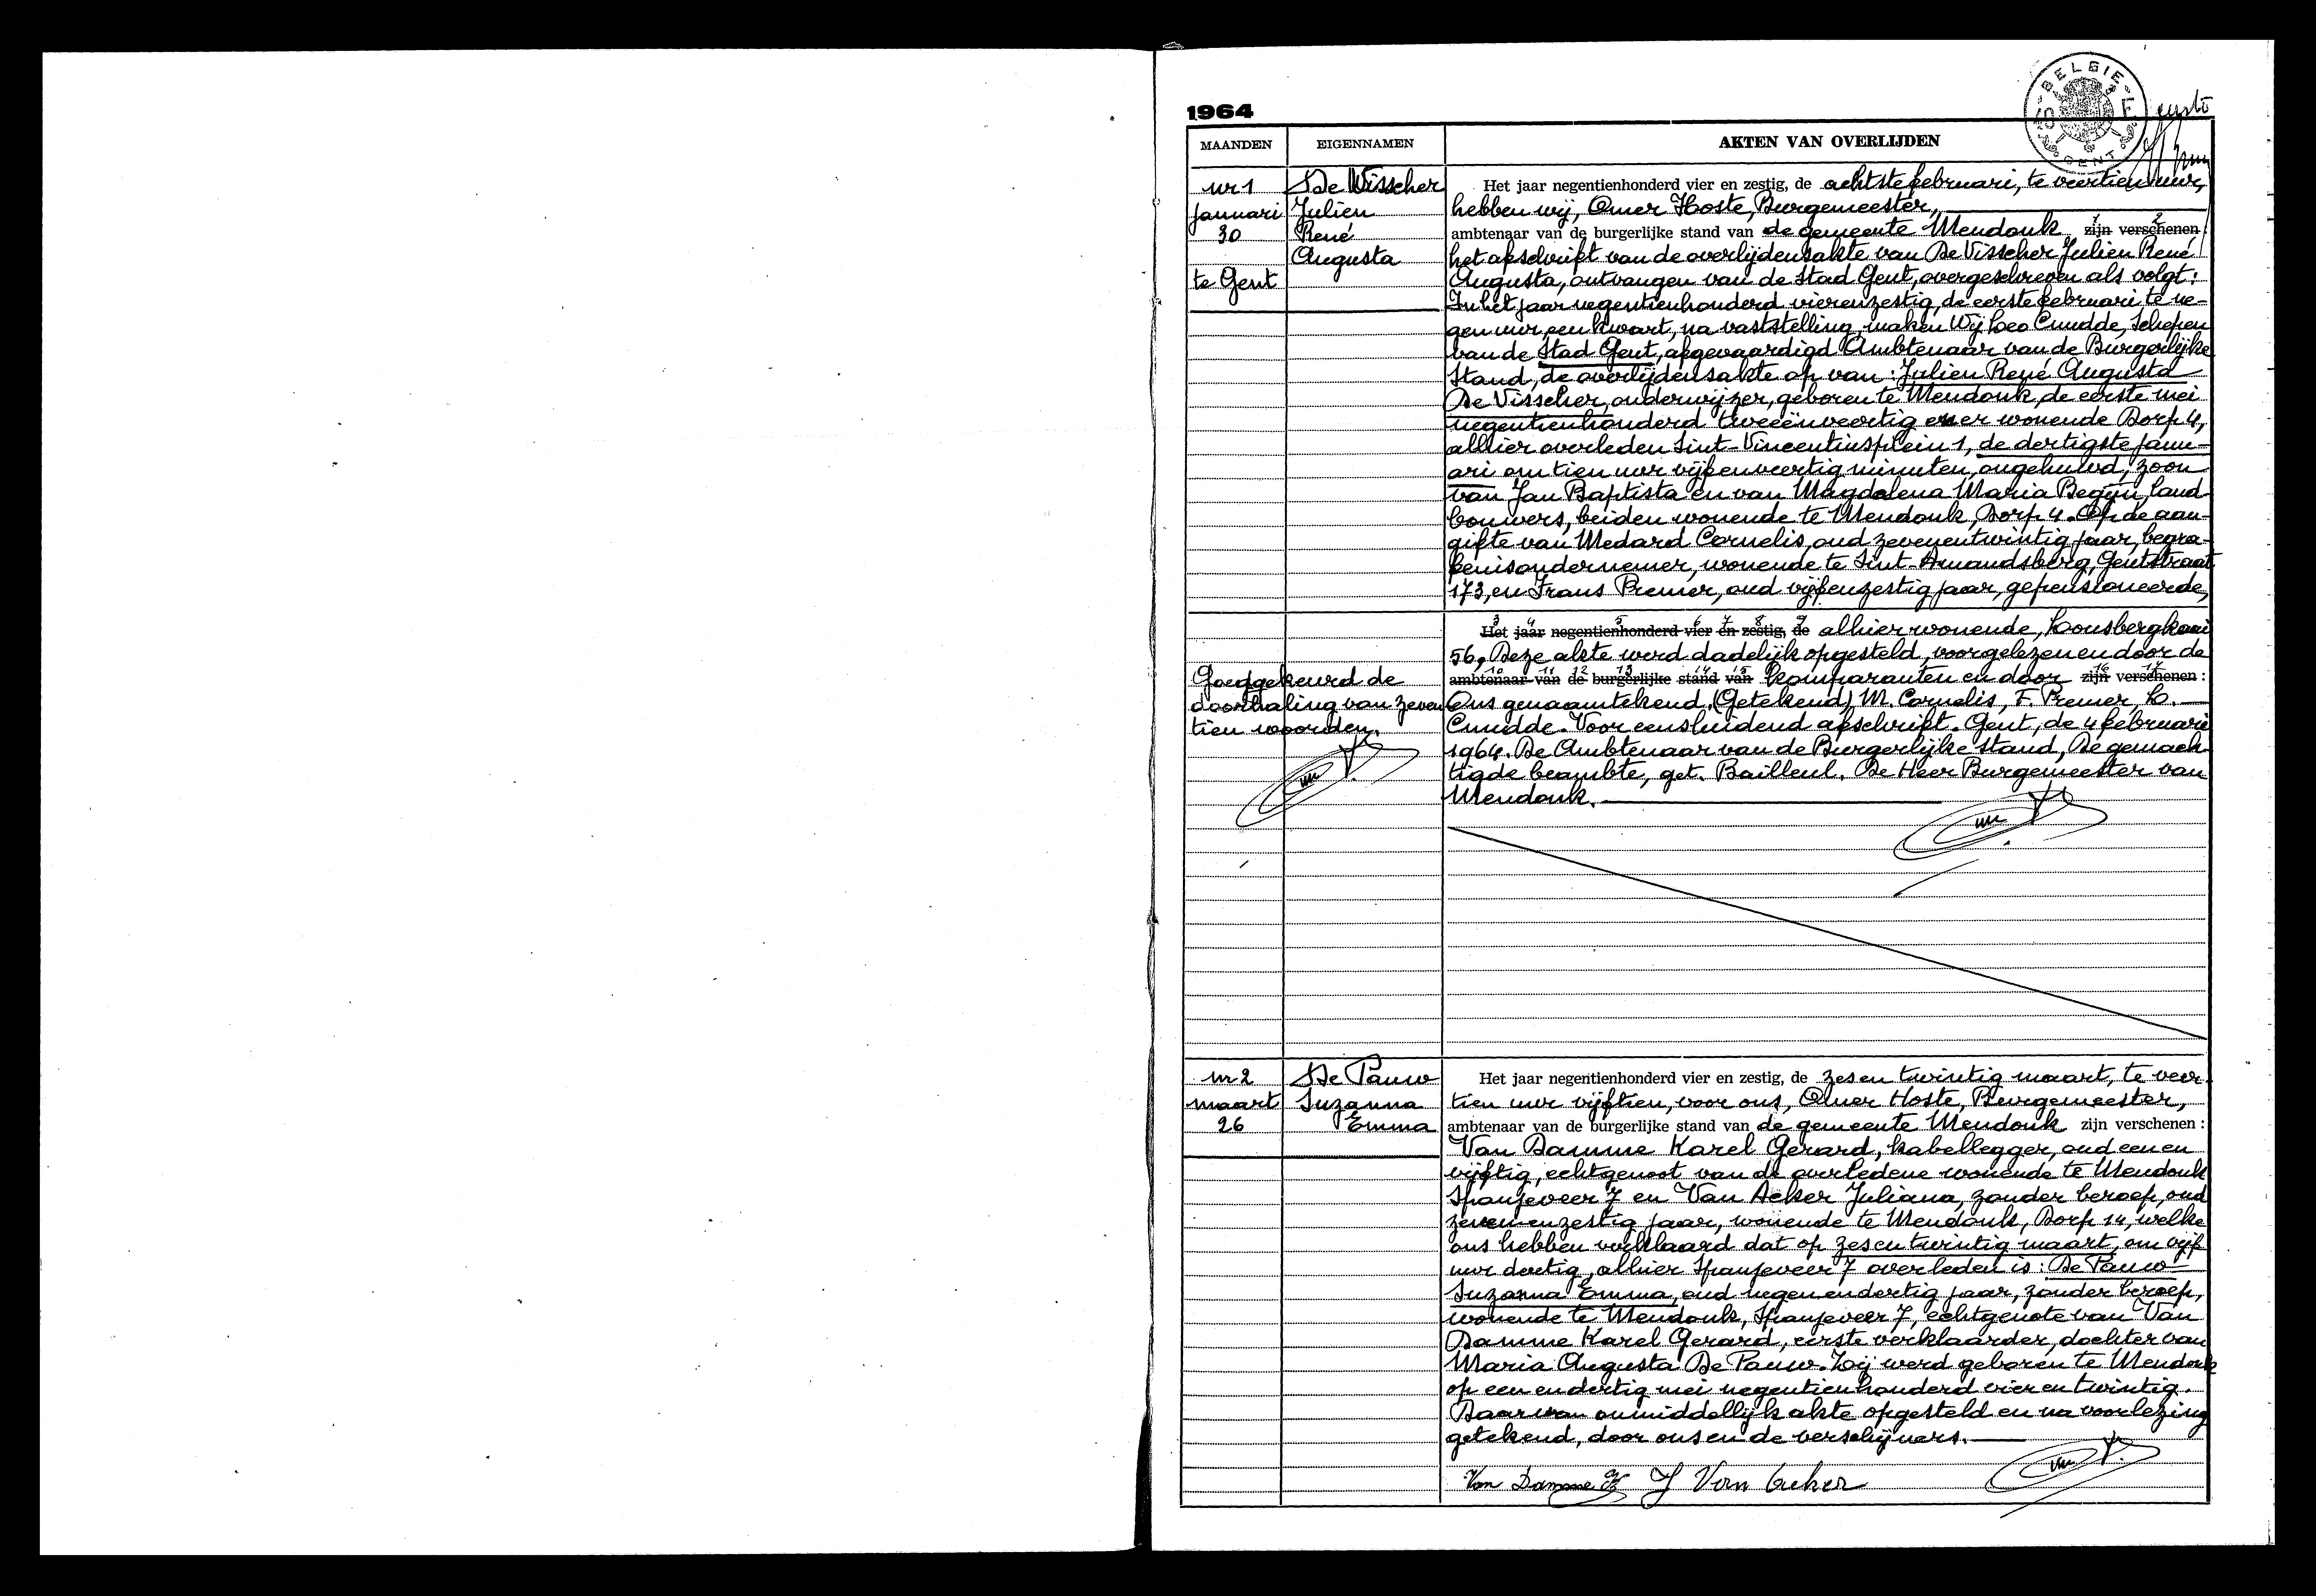 1964
BELGIE
GENT
MAANDEN EIGENNAMEN AKTEN VAN OVERLIJDEN
nr 1
januari
30
te Gent
De Visscher
Julien
René
Augusta
Het jaar negentienhonderd vier en zestig, de achtste februari, te veertien uur,
hebben wij, Omer Hoste, Burgemeester,
ambtenaar van de burgerlijke stand van de gemeente Mendonk zijn verschenen:
het afschrift van de overlijdensakte van De Visscher Julien René
Augusta, ontvangen van de Stad Gent, overgeschreven als volgt:
In het jaar negentienhonderd vierenzestig, de eerste februari te ne-
gen uur een kwart, na vaststelling, maken Wij Leo Cnudde, Schepen
van de Stad Gent, afgevaardigd Ambtenaar van de Burgerlijke
Stand, de overlijdensakte op van: Julien René Augusta
De Visscher, onderwijzer, geboren te Mendonk, de eerste mei
negentienhonderd tweeënveertig en er wonende Dorp 4,
alhier overleden Sint-Vincentiusplein 1, de dertigste janu-
ari om tien uur vijfenveertig minuten, ongehuwd, zoon
van Jan Baptista en van Magdalena Maria Begijn, land-
bouwers, beiden wonende te Mendonk, Dorp 4. Op de aan-
gifte van Medard Cornelis, oud zevenentwintig jaar, begra-
fenisondernemer, wonende te Sint-Amandsberg, Gentstraat
173, en Frans Premer, oud vijfenzestig jaar, gepensioneerde,
Het jaar negentienhonderd vier en zestig, de alhier wonende, Lousbergkaai
56. Deze akte werd dadelijk opgesteld, voorgelezen en door de
ambtenaar van de burgerlijke stand van komparanten en door zijn verschenen:
Ons genaamtekend. (Getekend) M. Cornelis, F. Premer, L.
Cnudde. Voor eensluidend afschrift. Gent, de 4 februari
1964. De Ambtenaar van de Burgerlijke stand, De gemach-
tigde beambte, get. Bailleul. De Heer Burgemeester van
Mendonk.
Goedgekeurd de
doorhaling van zeven
tien woorden.
nr 2
maart
26
De Pauw
Suzanna
Emma
Het jaar negentienhonderd vier en zestig, de zes en twintig maart, te veer-
tien uur vijftien, voor ons, Omer Hoste, Burgemeester,
ambtenaar van de burgerlijke stand van de gemeente Mendonk zijn verschenen:
Van Damme Karel Gerard, kabellegger, oud een en
vijftig, echtgenoot van de overledene wonende te Mendonk
Spanjeveer 7 en Van Acker Juliana, zonder beroep, oud
zevenenzestig jaar, wonende te Mendonk, Dorp 14, welke
ons hebben verklaard dat op zes en twintig maart, om vijf
uur dertig, alhier Spanjeveer 7 overleden is: De Pauw
Suzanna Emma, oud negenendertig jaar, zonder beroep,
wonende te Mendonk, Spanjeveer 7, echtgenote van Van
Damme Karel Gerard, eerste verklaarder, dochter van
Maria Augusta De Pauw. Zij werd geboren te Mendonk
op een en dertig mei negentienhonderd vier en twintig.
Daarvan onmiddellijk akte opgesteld en na voorlezing
getekend, door ons en de verschijners.
Van Damme J Van Acker